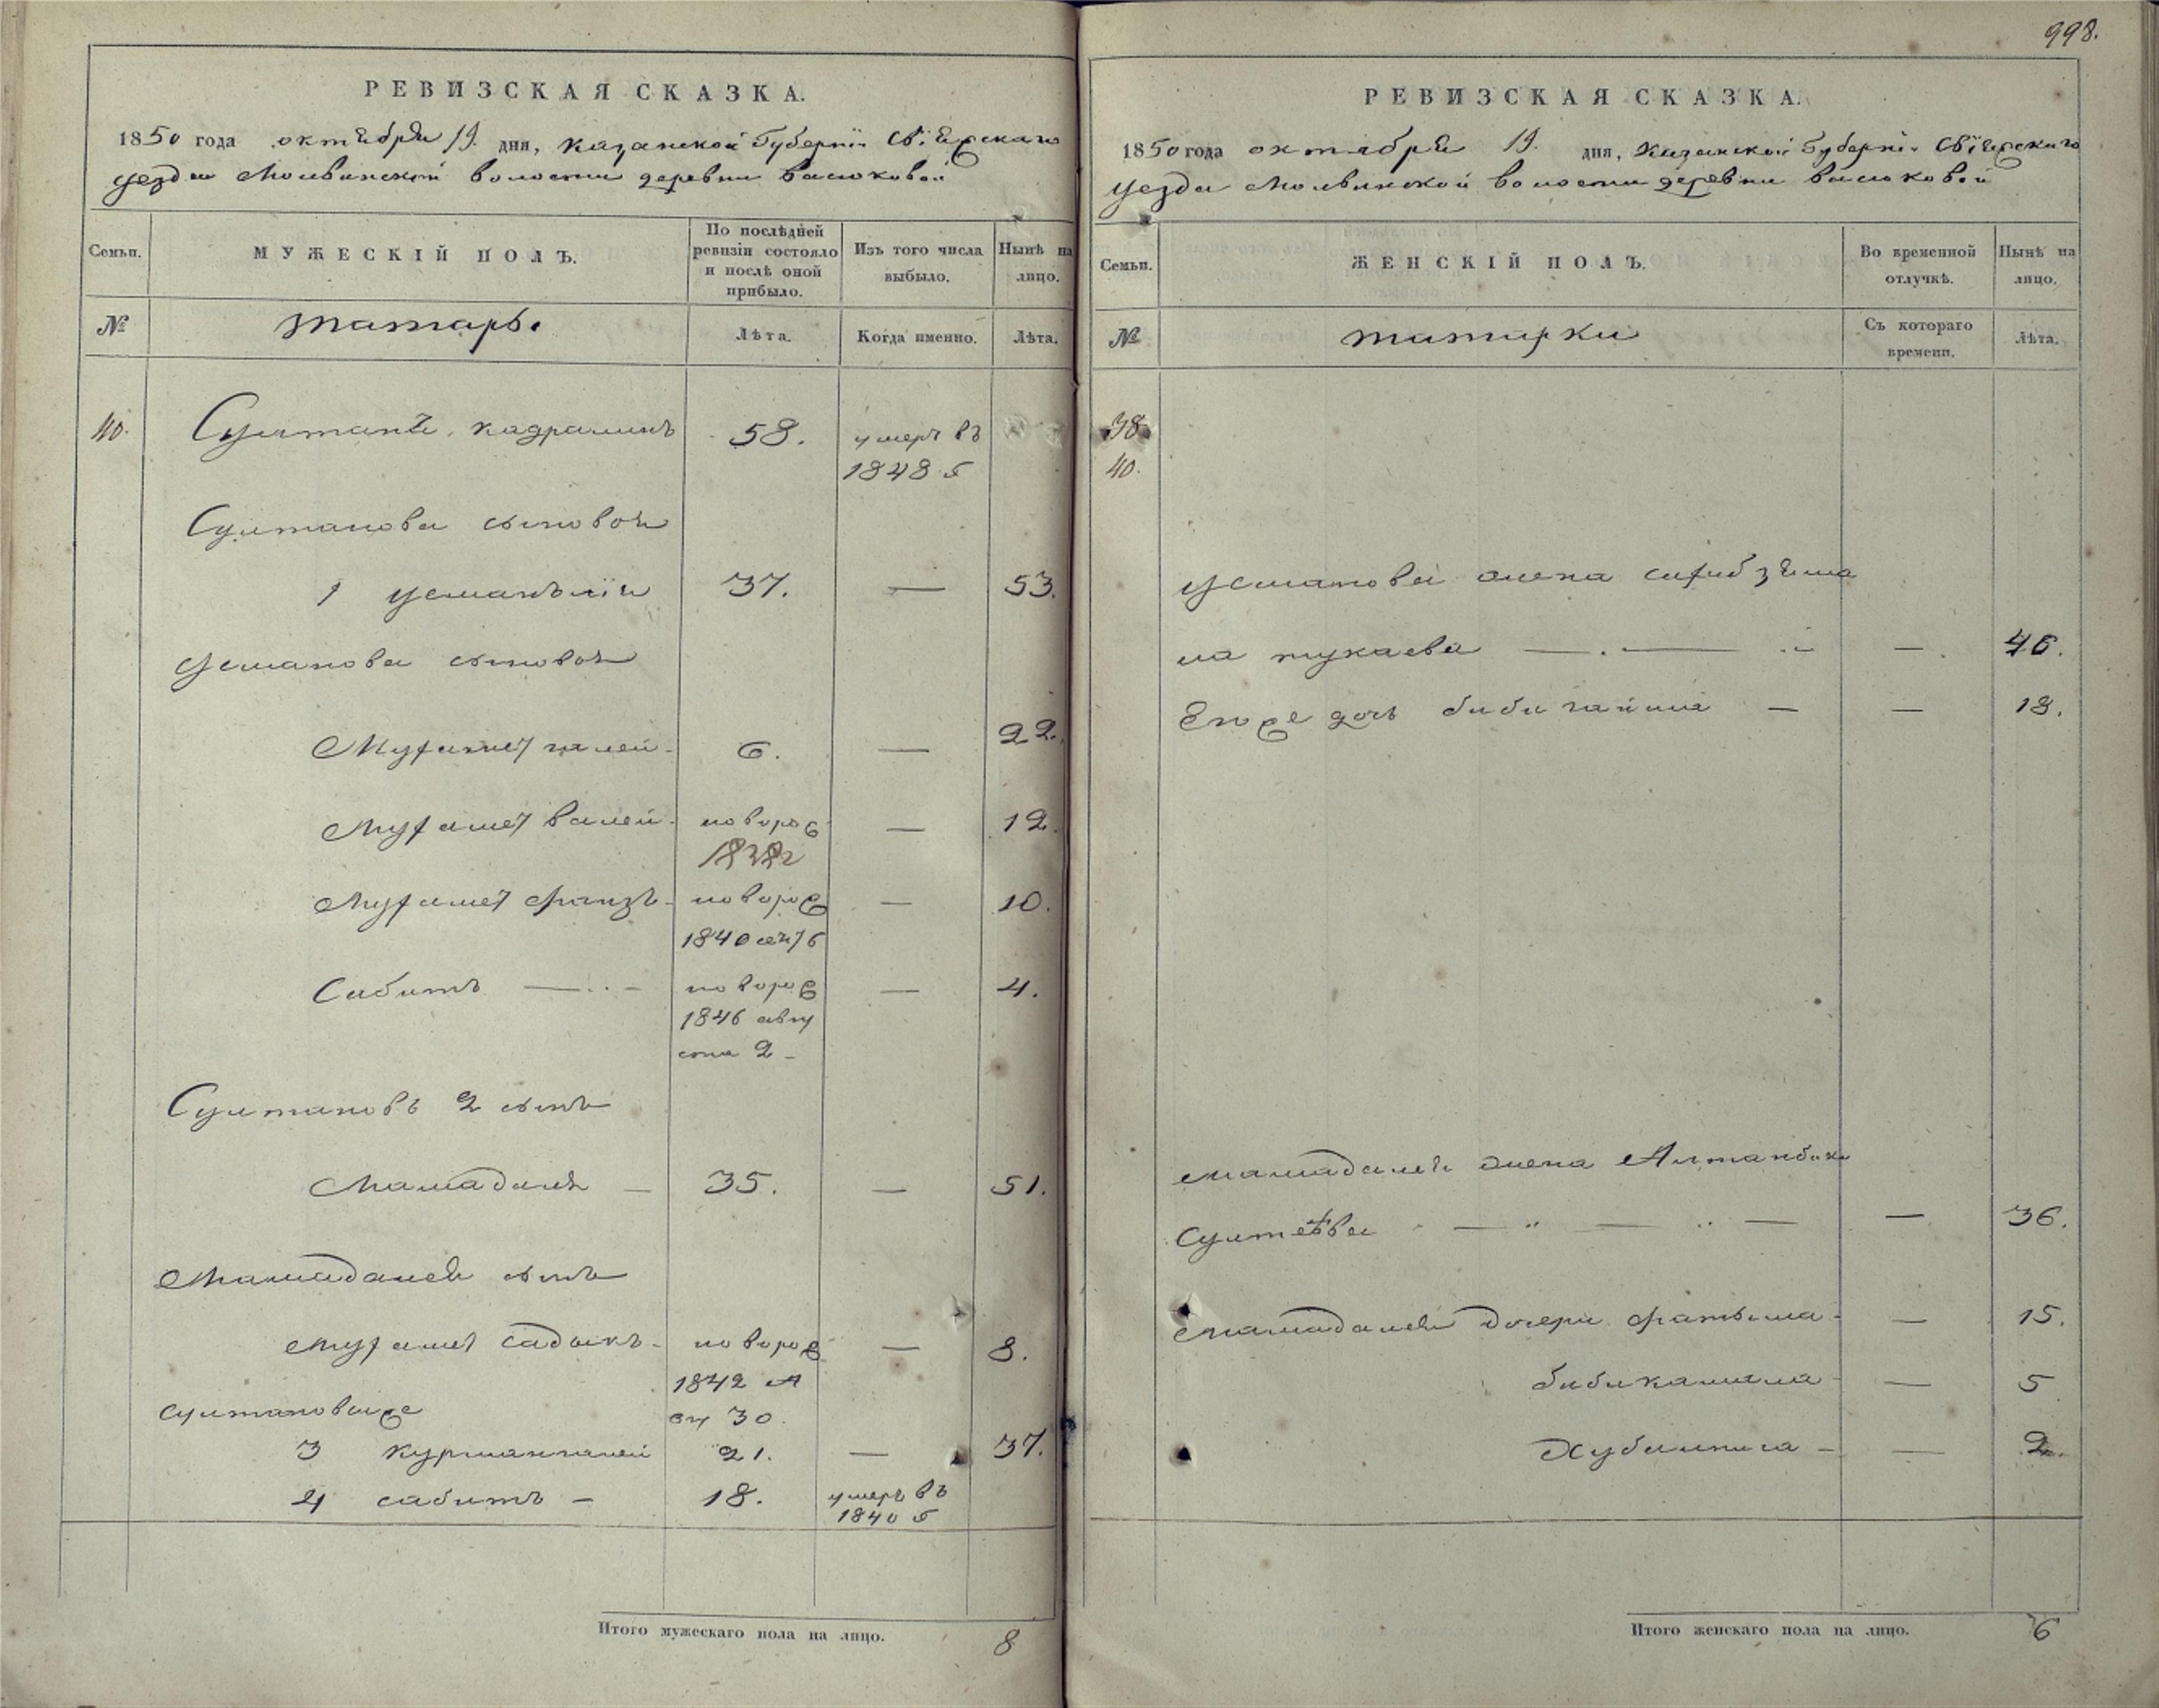 998.
РЕВИЗСКАЯ СКАЗКА.
1850 года октября 19. дня, Казанской Губерніи Свіяжскаго
уезда Молвинской волости деревни Васюковой
Семьи.
МУЖЕСКІЙ ПОЛЪ.
По послѣдней ревизіи состояло и послѣ оной прибыло.
Изъ того числа выбыло.
Нынѣ на лицо.
№
татары
Лѣта.
Когда именно.
Лѣта.
40. Султанъ 58. умеръ въ
1848 г
Султанова сыновья
1 37. — 53.
Усманова сыновья
Мухаметгалей 6. — 22.
Мухаметвалей новорож — 12.
1838г
Мухамет новорож — 10.
1840
Сабитъ — новорож — 4.
1846 авгу
ста 2 —
Султановъ 2 сынъ
Мамадалей — 35. — 51.
Мамадалея сынъ
Мухамет садыкъ новорож — 8.
1842
30.
Султановы же
3 Курмангалей 21. — 37.
4 сабитъ — 18. умеръ въ
1840 г
Итого мужескаго пола на лицо. 8
РЕВИЗСКАЯ СКАЗКА.
1850 года октября 19. дня, Казанской Губерніи Свіяжскаго
уезда Молвинской волости деревни Васюковой
Семьи.
ЖЕНСКІЙ ПОЛЪ.
Во временной отлучкѣ.
Нынѣ на лицо.
№
татарки
Съ котораго времени.
Лѣта.
38
40.
Усманова жена
на тукаева — — 46.
Его же дочь — — 18.
Мамадалея жена Алтанбика
— — — 36.
Мамадалея дочери Фатыма — 15.
бибикамала — 5
Хубамниса — — 2.
Итого женскаго пола на лицо. 6